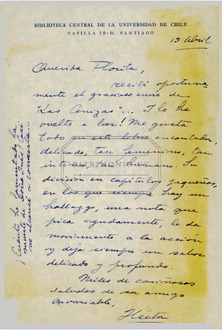 BIBLIOTECA CENTRAL DE LA UNIVERSIDAD DE CHILE
CASILLA 10-D. SANTIAGO
13 Abril
Querida Florita,
Recibí oportuna-
mente el gracioso envío de
"Las Cenizas"... Y lo he
vuelto a leer! Me gusta
todo encantador,
delicado, tan femenino, tan
humano. Su
división en capítulos pequeños,
en los que siempre hay un
hallazgo, una nota que
pica agudamente, le da
movimiento a la acción
y deja siempre un sabor
delicado y profundo.
Miles de cariñosos
saludos de su amigo
invariable,
Hector
Cuánto he lamentado la
muerte de
no alcancé a conocerla.